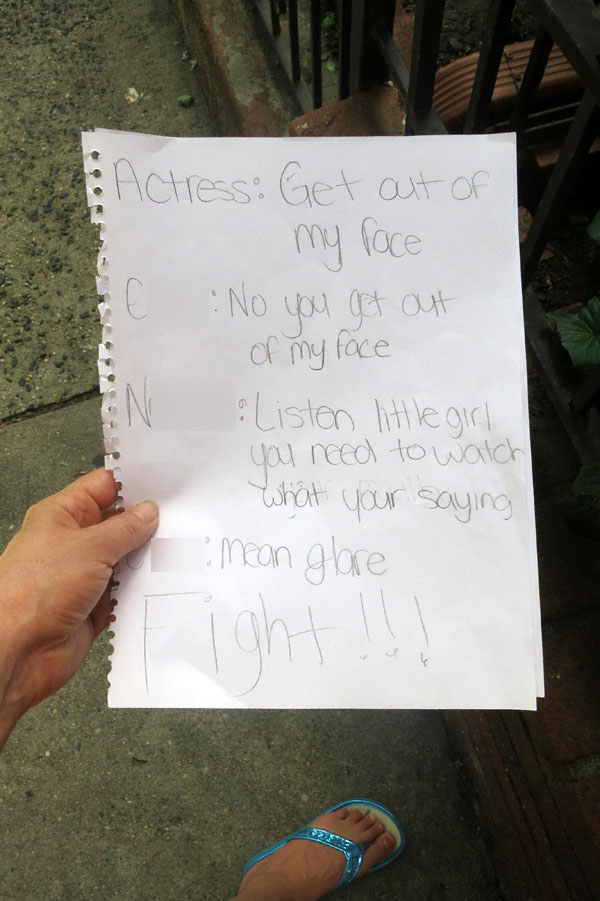 Actress: Get out of
my face
: No you get out
of my face
: Listen little girl
you need to watch
what your saying
: mean glare
Fight!!!